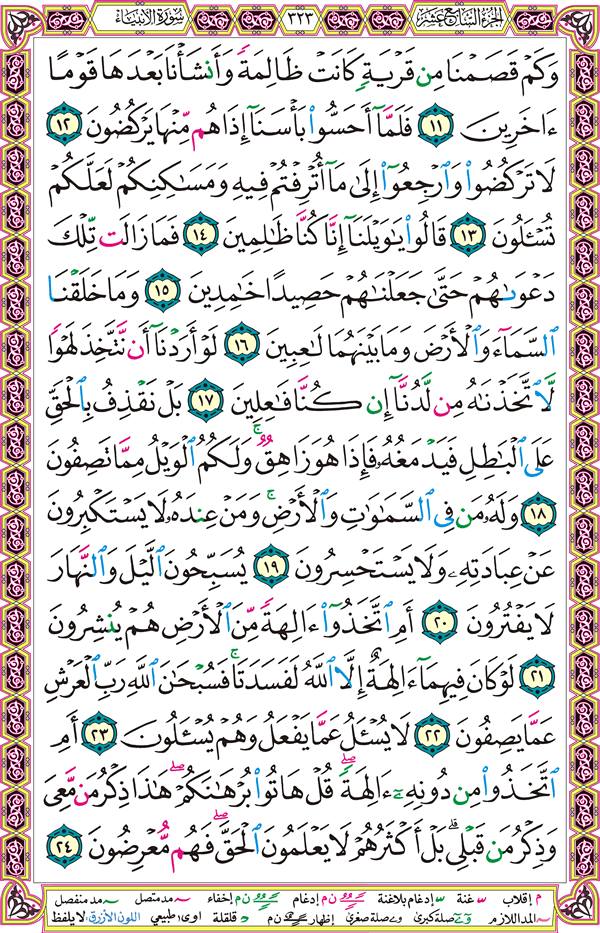 الجزء السابع عشر ٣٢٣ سورة الأنبياء
وَكَمْ قَصَمْنَا مِن قَرْيَةٍ كَانَتْ ظَالِمَةً وَأَنشَأْنَا بَعْدَهَا قَوْمًا
ءَاخَرِينَ ١١ فَلَمَّآ أَحَسُّوا۟ بَأْسَنَآ إِذَا هُم مِّنْهَا يَرْكُضُونَ ١٢
لَا تَرْكُضُوا۟ وَٱرْجِعُوٓا۟ إِلَىٰ مَآ أُتْرِفْتُمْ فِيهِ وَمَسَٰكِنِكُمْ لَعَلَّكُمْ
تُسْـَٔلُونَ ١٣ قَالُوا۟ يَٰوَيْلَنَآ إِنَّا كُنَّا ظَٰلِمِينَ ١٤ فَمَا زَالَت تِّلْكَ
دَعْوَىٰهُمْ حَتَّىٰ جَعَلْنَٰهُمْ حَصِيدًا خَٰمِدِينَ ١٥ وَمَا خَلَقْنَا
ٱلسَّمَآءَ وَٱلْأَرْضَ وَمَا بَيْنَهُمَا لَٰعِبِينَ ١٦ لَوْ أَرَدْنَآ أَن نَّتَّخِذَ لَهْوًا
لَّٱتَّخَذْنَٰهُ مِن لَّدُنَّآ إِن كُنَّا فَٰعِلِينَ ١٧ بَلْ نَقْذِفُ بِٱلْحَقِّ
عَلَى ٱلْبَٰطِلِ فَيَدْمَغُهُۥ فَإِذَا هُوَ زَاهِقٌ ۚ وَلَكُمُ ٱلْوَيْلُ مِمَّا تَصِفُونَ
١٨ وَلَهُۥ مَن فِى ٱلسَّمَٰوَٰتِ وَٱلْأَرْضِ ۚ وَمَنْ عِندَهُۥ لَا يَسْتَكْبِرُونَ
عَنْ عِبَادَتِهِۦ وَلَا يَسْتَحْسِرُونَ ١٩ يُسَبِّحُونَ ٱلَّيْلَ وَٱلنَّهَارَ
لَا يَفْتُرُونَ ٢٠ أَمِ ٱتَّخَذُوٓا۟ ءَالِهَةً مِّنَ ٱلْأَرْضِ هُمْ يُنشِرُونَ
٢١ لَوْ كَانَ فِيهِمَآ ءَالِهَةٌ إِلَّا ٱللَّهُ لَفَسَدَتَا ۚ فَسُبْحَٰنَ ٱللَّهِ رَبِّ ٱلْعَرْشِ
عَمَّا يَصِفُونَ ٢٢ لَا يُسْـَٔلُ عَمَّا يَفْعَلُ وَهُمْ يُسْـَٔلُونَ ٢٣ أَمِ
ٱتَّخَذُوا۟ مِن دُونِهِۦٓ ءَالِهَةً ۖ قُلْ هَاتُوا۟ بُرْهَٰنَكُمْ ۖ هَٰذَا ذِكْرُ مَن مَّعِىَ
وَذِكْرُ مَن قَبْلِى ۗ بَلْ أَكْثَرُهُمْ لَا يَعْلَمُونَ ٱلْحَقَّ ۖ فَهُم مُّعْرِضُونَ ٢٤
م إقلاب غنة إدغام بلاغنة ن م إدغام ن إخفاء مد متصل مد منفصل
المد اللازم صلة كبرى صلة صغرى إظهار ن م قلقلة اوى: طبيعي اللون الأزرق: لا يلفظ